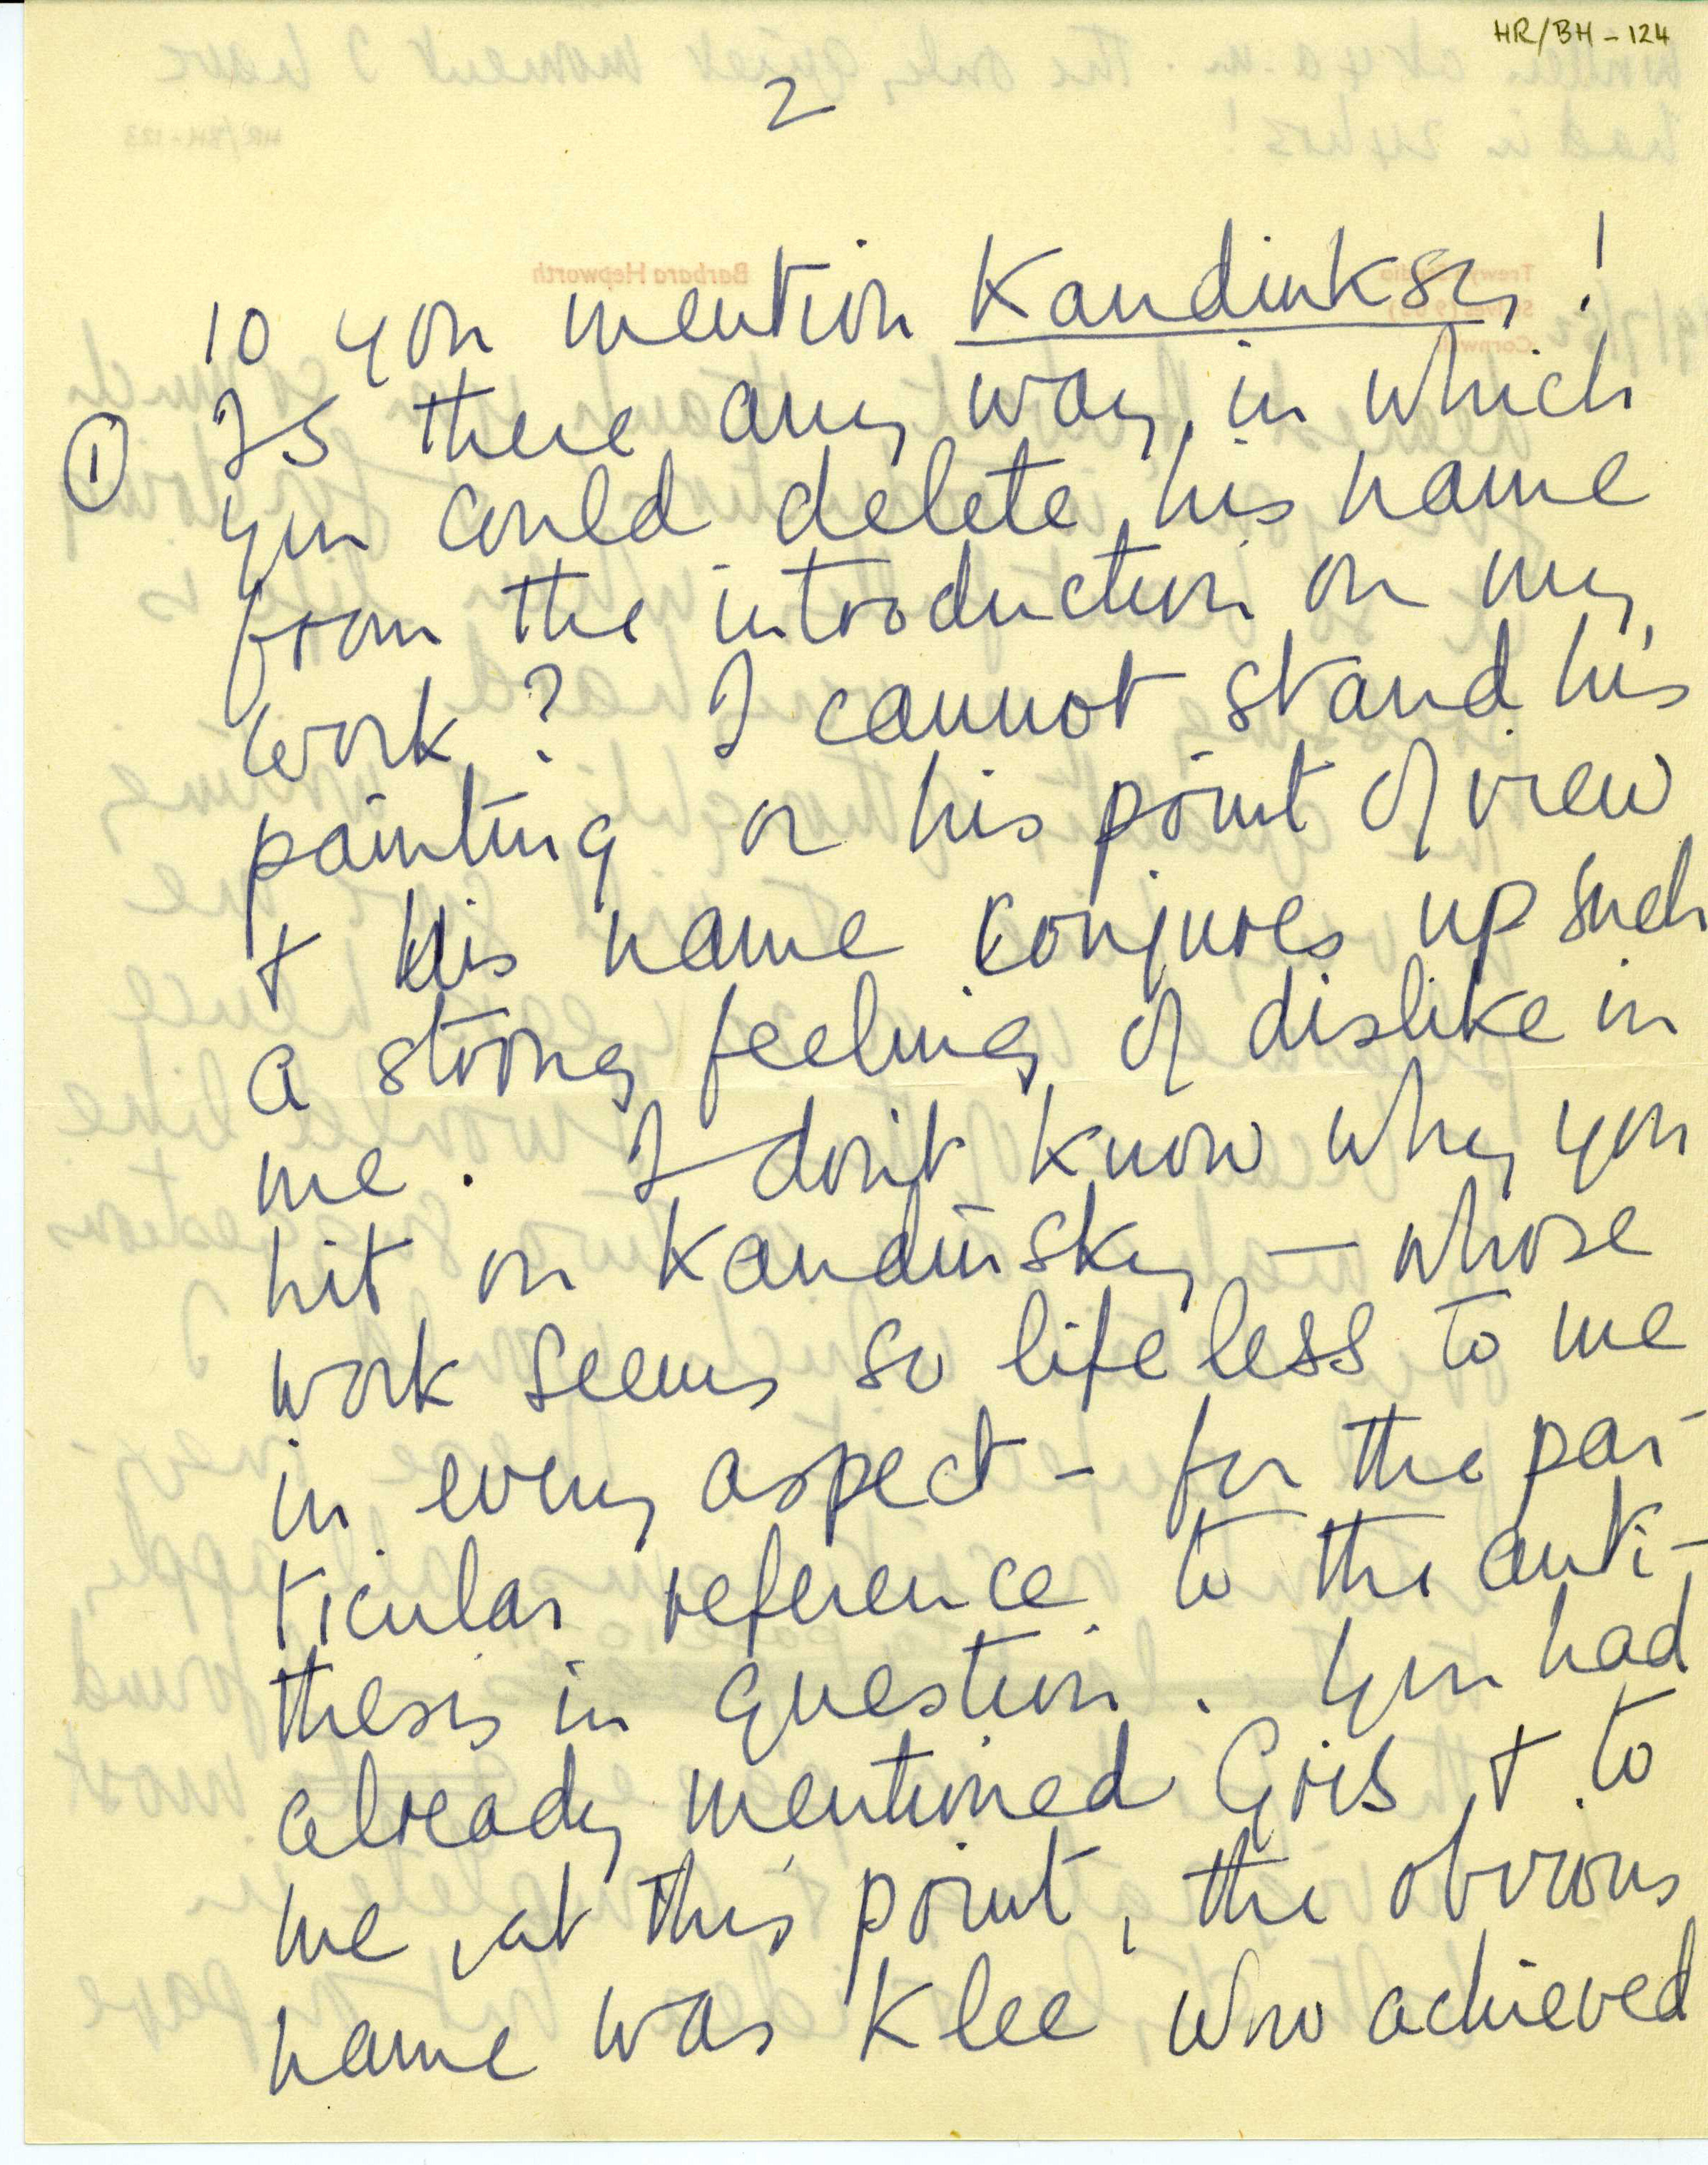 HR/BH - 124
2
10 you mention Kandinksy !
① Is there any way, in which
you could delete his name
from the introduction on my
work? I cannot stand his
painting or his point of view
+ his name conjures up such
a strong feeling of dislike in
me. I don't know why you
hit on Kandinsky — whose
work seems so lifeless to me
in every aspect - for the par-
ticular reference to the anti-
thesis in question. You had
already mentioned Gris + to
me, at this point, the obvious
name was Klee who achieved